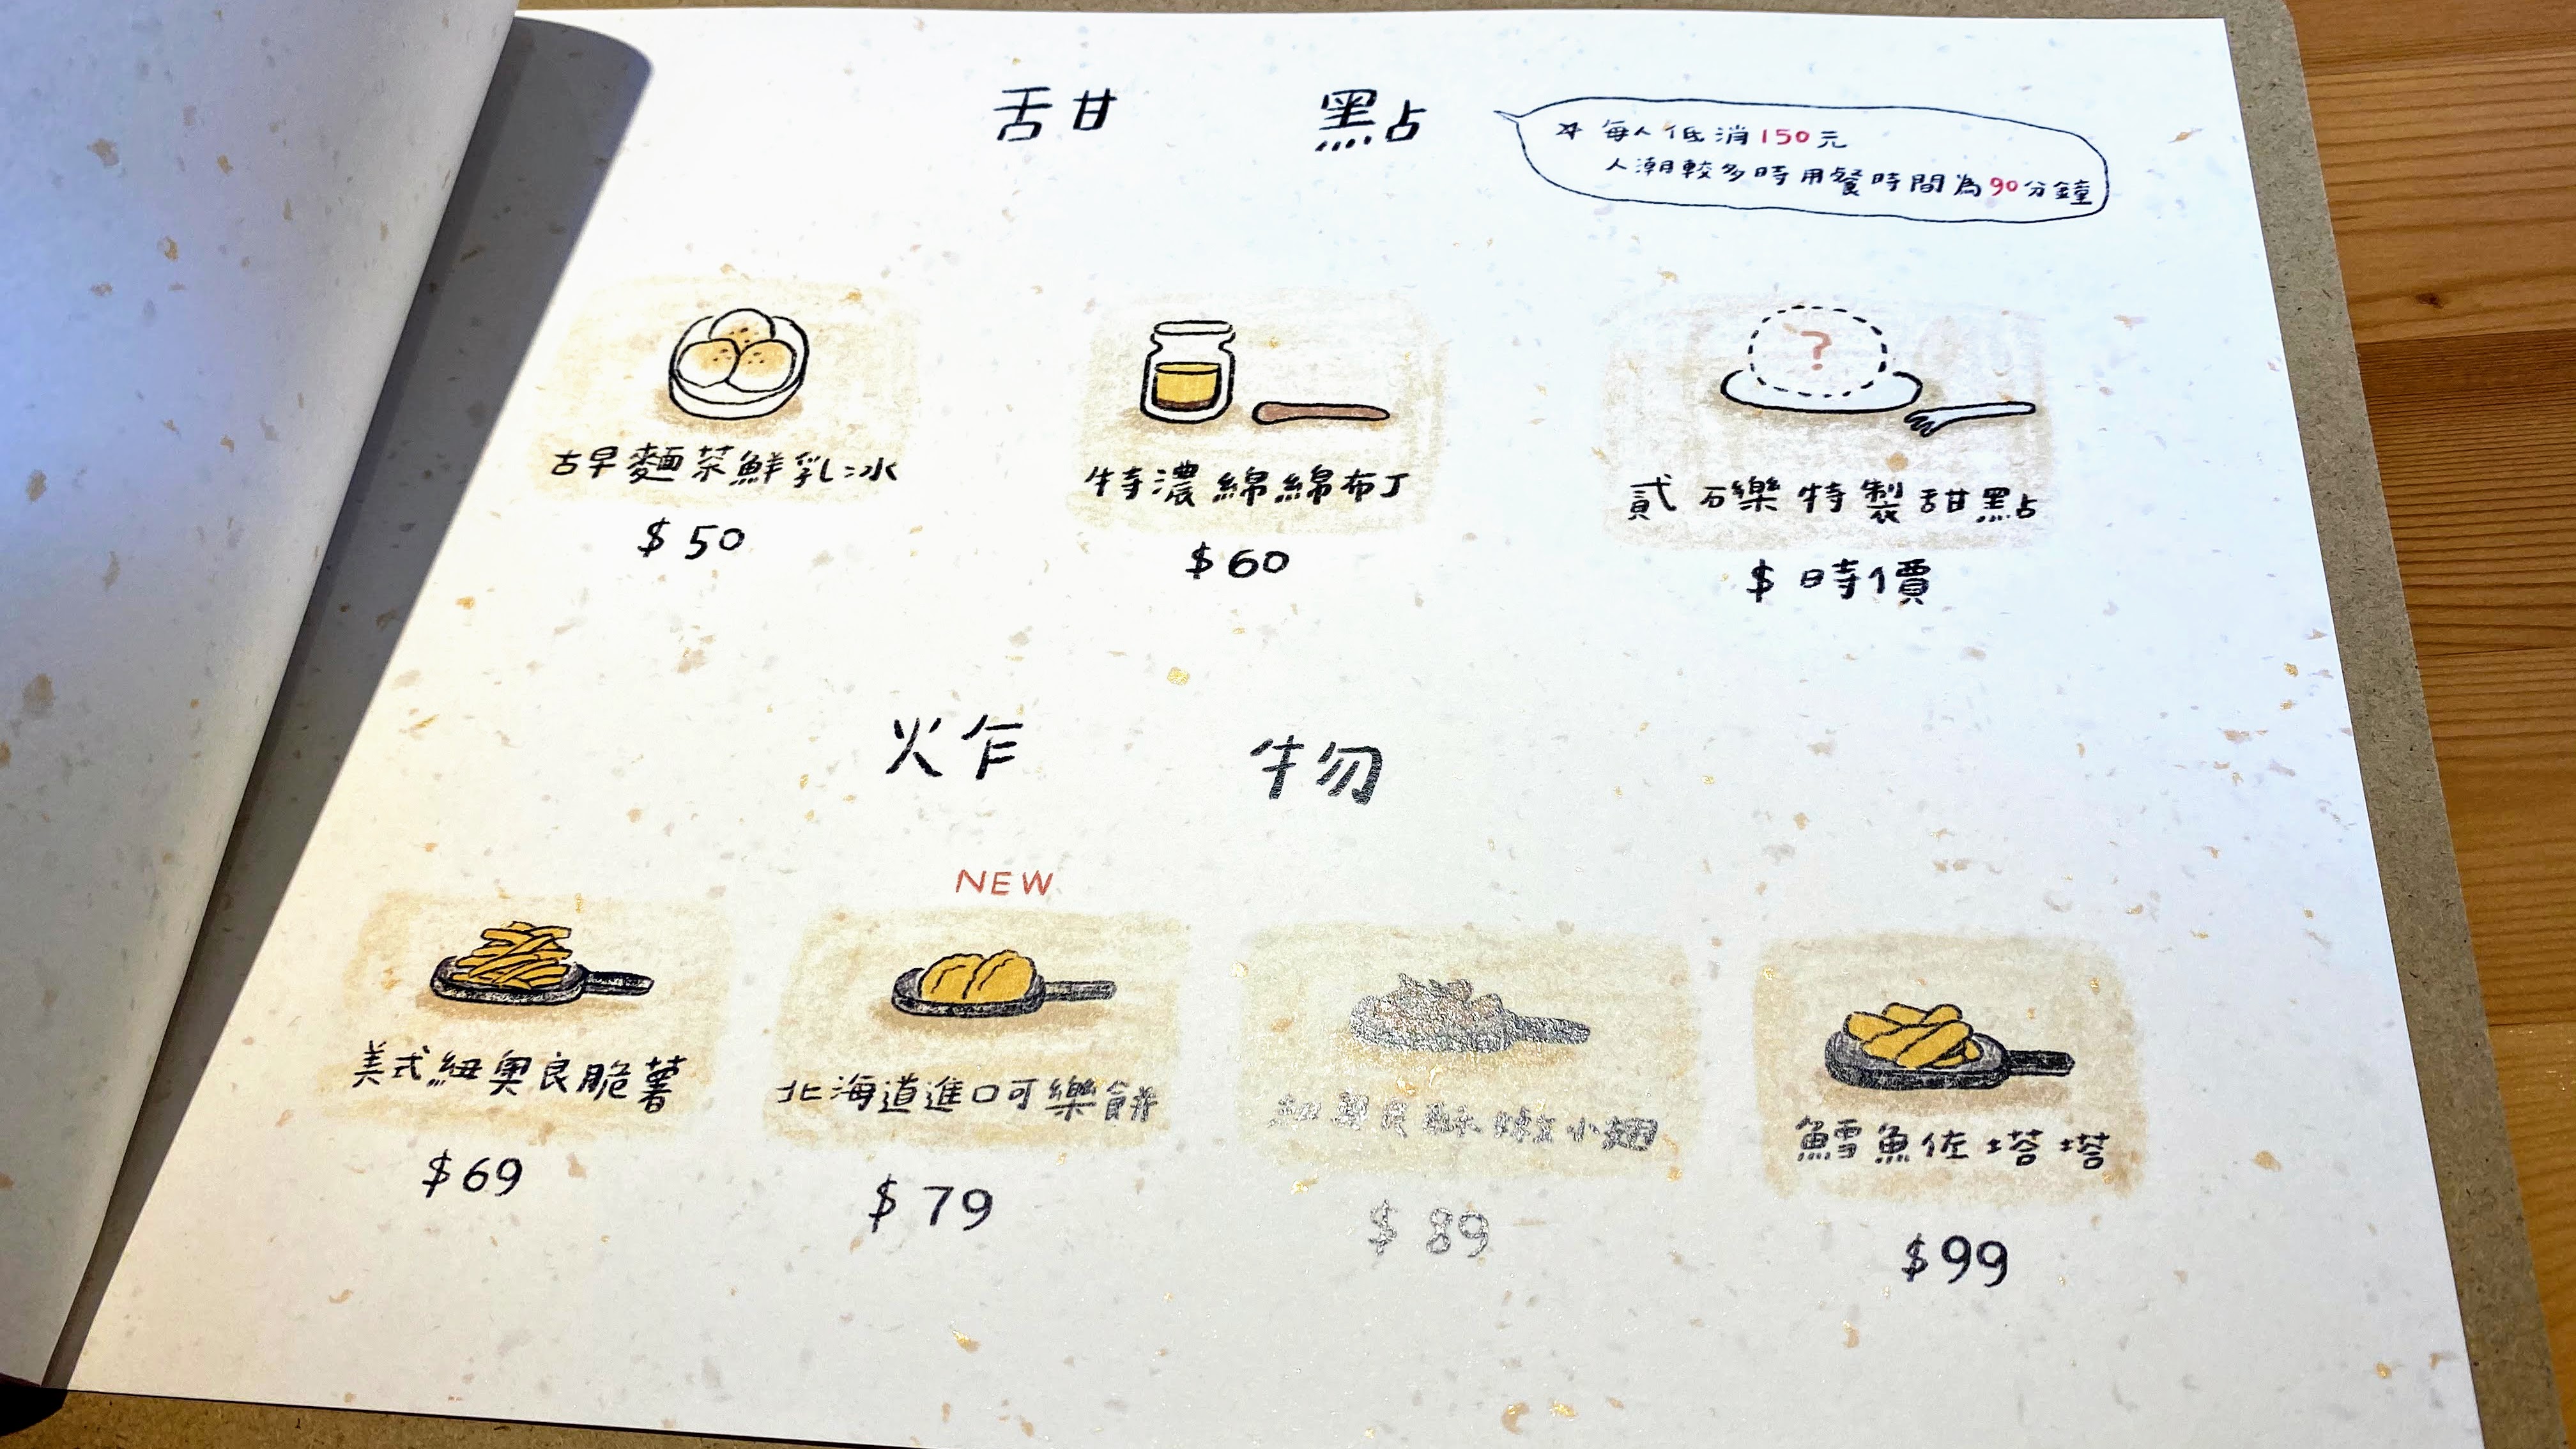 甜點
☆ 每人低消150元
人潮較多時用餐時間為90分鐘
古早麵茶鮮乳冰
$50
特濃綿綿布丁
$60
?
貳礫特製甜點
$時價
炸物
美式紐奧良脆薯
$69
NEW
北海道進口可樂餅
$79
紐奧良酥嫩小翅
$89
鱈魚佐塔塔
$99